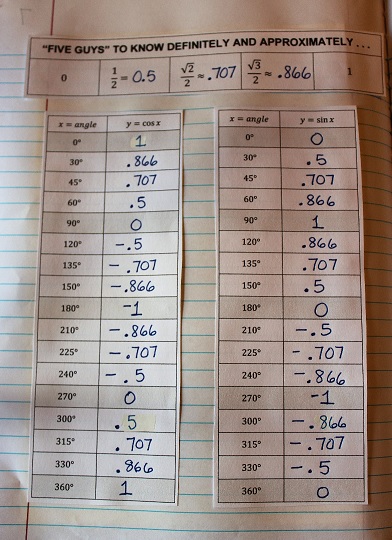 "FIVE GUYS" TO KNOW DEFINITELY AND APPROXIMATELY . . .
0 1/2 = 0.5 √2/2 ≈ .707 √3/2 ≈ .866 1
x = angle y = cos x
0° 1
30° .866
45° .707
60° .5
90° 0
120° -.5
135° -.707
150° -.866
180° -1
210° -.866
225° -.707
240° -.5
270° 0
300° .5
315° .707
330° .866
360° 1
x = angle y = sin x
0° 0
30° .5
45° .707
60° .866
90° 1
120° .866
135° .707
150° .5
180° 0
210° -.5
225° -.707
240° -.866
270° -1
300° -.866
315° -.707
330° -.5
360° 0